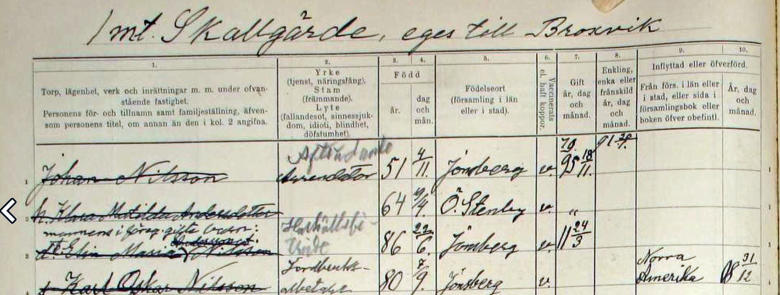 1 mt. Skallgärde, eges till Broxvik
1. 2. 3. 4. 5. 6. 7. 8. 9. 10.
Torp, lägenhet, verk och inrättningar m. m. under ofvan-
stående fastighet.
Personens för- och tillnamn samt familjeställning, äfven-
som personens titel, om annan än den i kol. 2 angifna.
Yrke
(tjenst, näringsfång).
Stam
(främmande).
Lyte
(fallandesot, sinnessjuk-
dom, idioti, blindhet,
döfstumhet).
Född
år.
dag
och
mån.
Födelseort
(församling i län
eller i stad).
Vaccinerats
el. haft koppor.
Gift
år, dag
och
månad.
Enkling,
enka eller
frånskild
år, dag
och
månad.
Inflyttad eller öfverförd.
Från förs. i län eller
i stad, eller sida i
församlingsbok eller
boken öfver obefintl.
År, dag
och
månad.
Johan Nilsson Arrendator 51 4/11 Jonsberg v. 95 18/11
h. Klara Matilda Andersdotter 64 /4 Ö. Stenby v. "
mannens i föreg. gifte barn:
d. Elin Maria Nilsson 86 22/6 Jonsberg v. 11 24/3
s. Karl Oskar Nilsson Jordbruks- 80 7/9 Jonsberg v. Norra Amerika 08 31/12